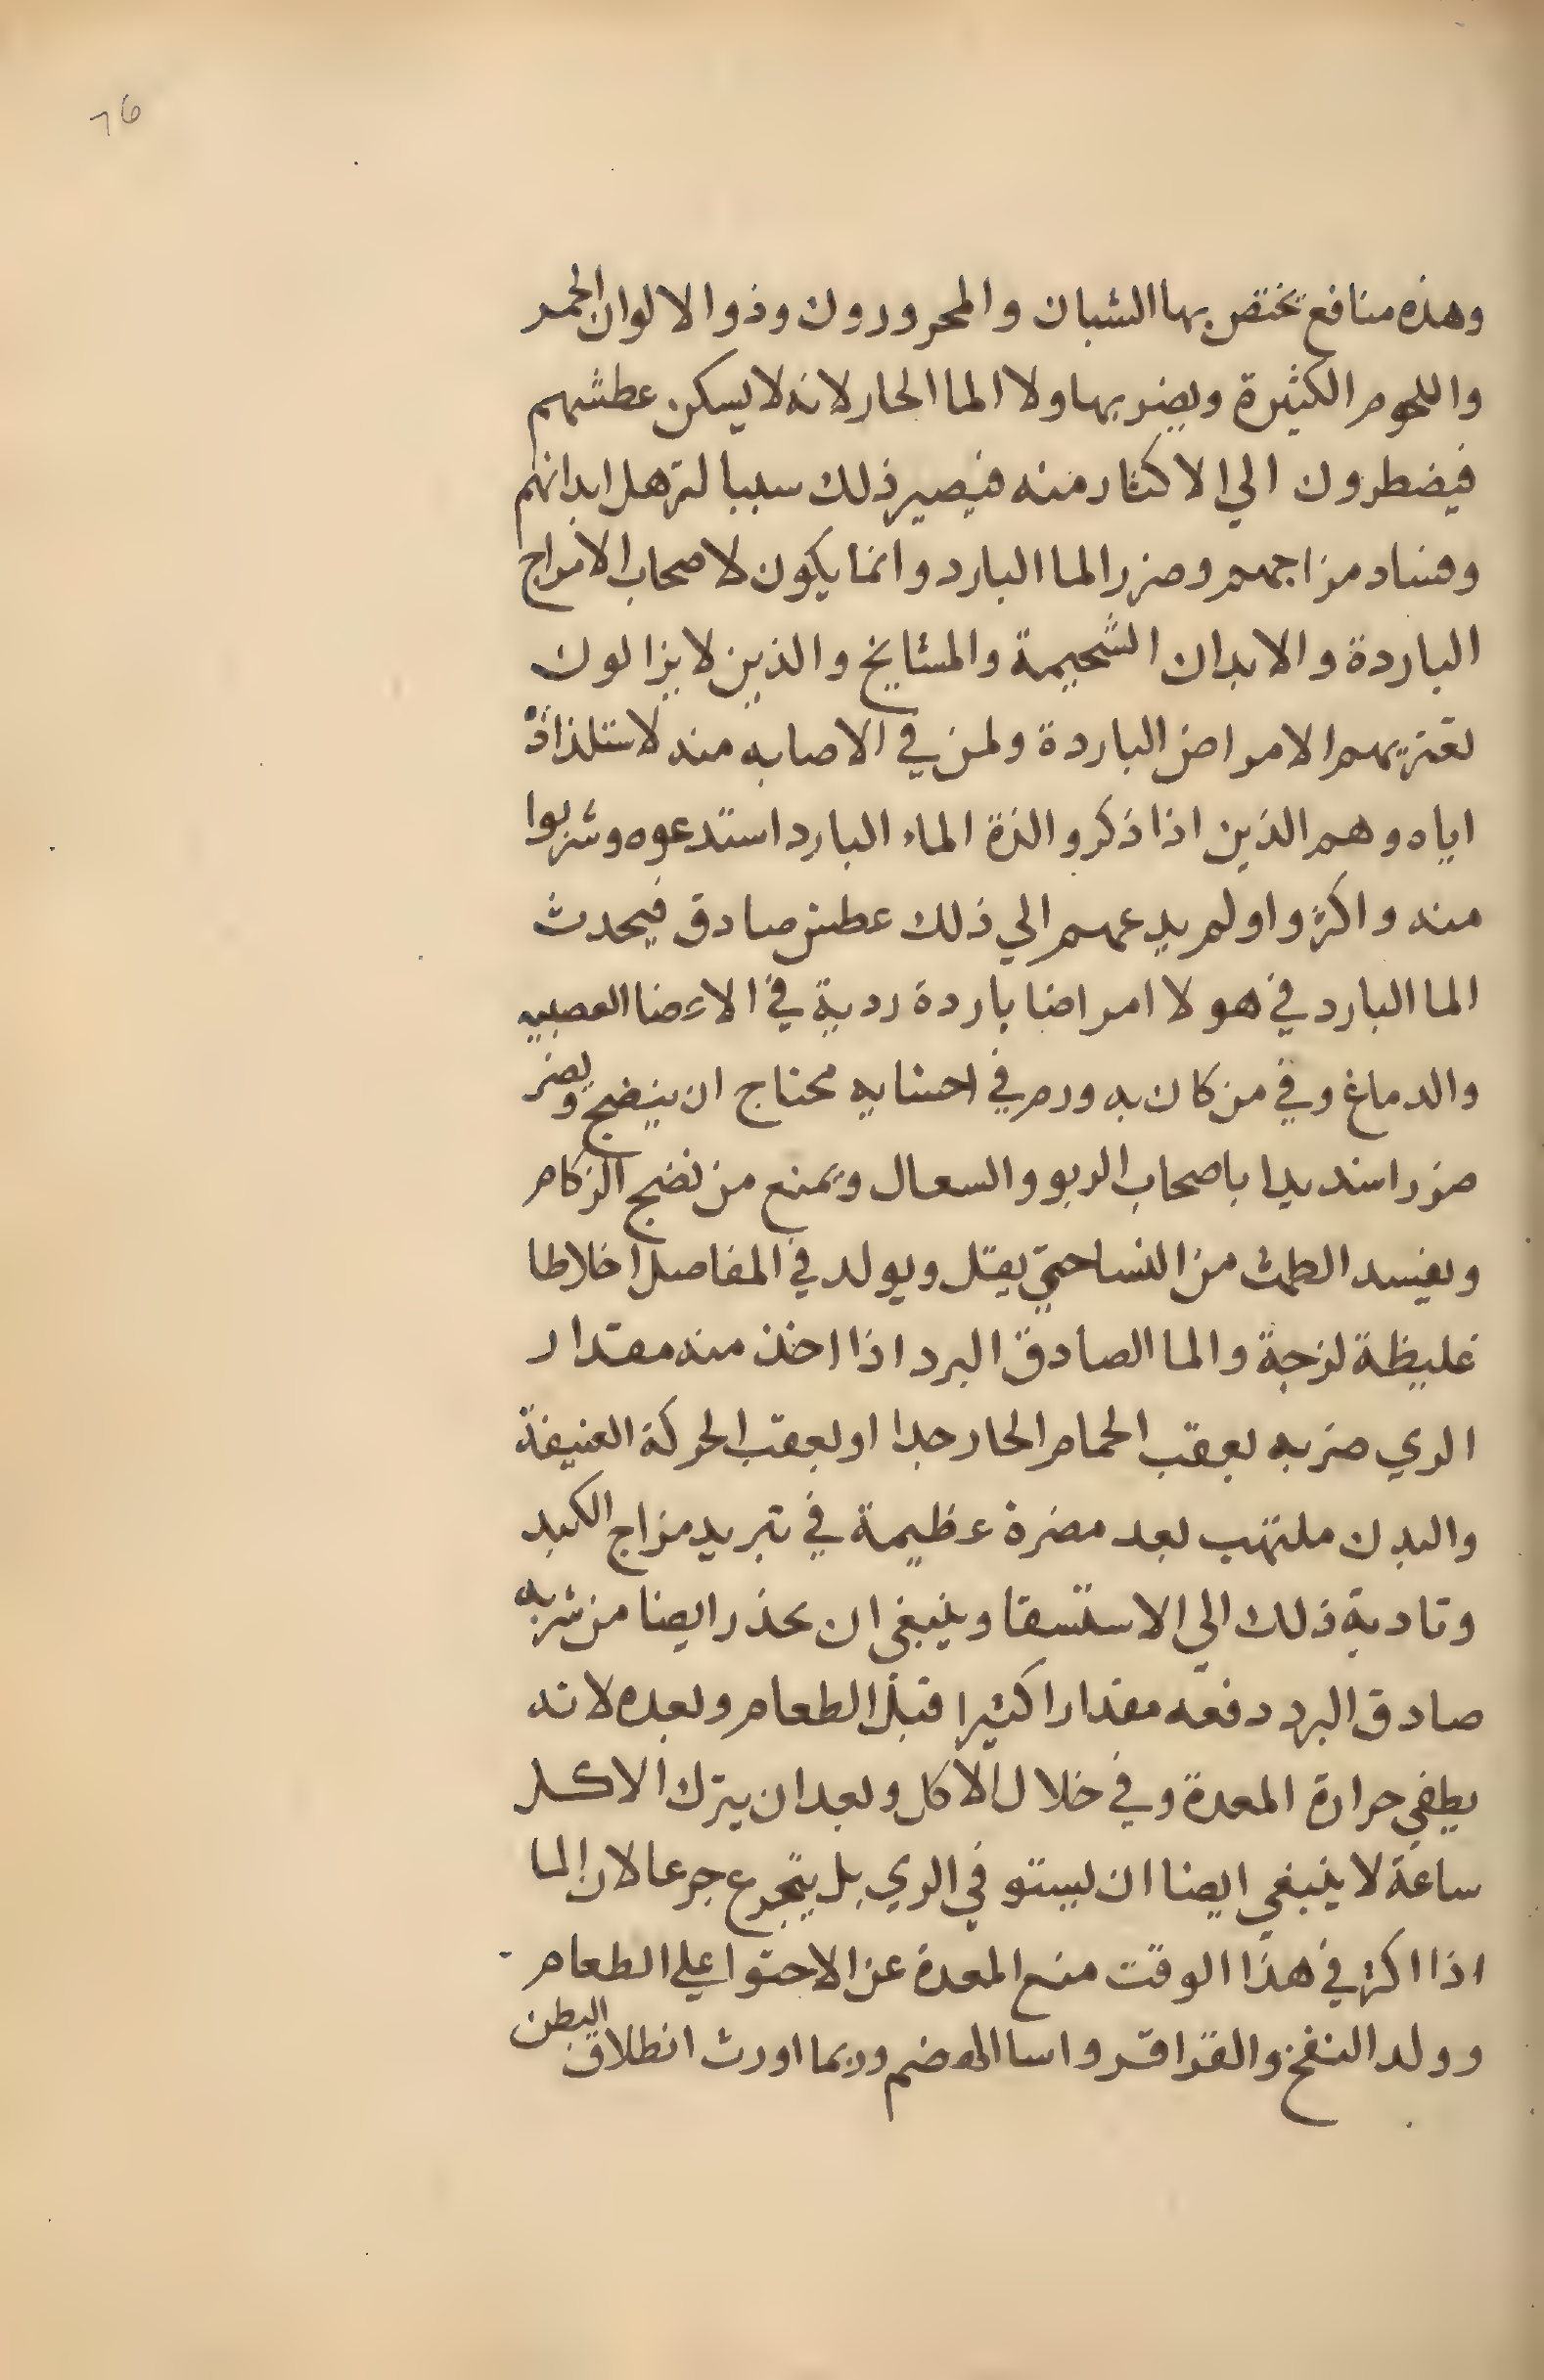 76
وهذه منافع تختص بها الشبان والمحرورون وذوا الالوان الحمر
واللحوم الكثيرة ويضر بهاولا الما الحار لانه لا يسكن عطشهم
فيضطرون الي الاكثار منه فيصير ذلك سببا لترهل ابدانهم
وفساد مزاجهم وضرر الما البارد وانما يكون لاصحاب الامزاج
الباردة والابدان الشحيمة والمشايخ والذين لا يزالون
تعتريهم الامراض الباردة ولمن في الاصابه منه لاستلذاذه
اياه وهم الذين اذا ذكروا لذة الماء البارد استدعوه وشربوا
منه واكثروا ولم يدعهم الي ذلك عطش صادق فيحدث
الما البارد في هولا امراضا باردة ردية في الاعضا العصبيه
والدماغ وفي من كان به ورم في احشايه محتاج ان ينضج ويضر
ضررا شديدا باصحاب الربو والسعال ويمنع من نضج الزكام
ويفسد الطمث من النسا حتي يقتل ويولد في المفاصل اخلاطا
غليظة لزجة والما الصادق البرد اذا اخذ منه مقدار
الري ضربه بعقب الحمام الحار جدا او بعقب الحركة العنيفة
والبدن ملتهب بعد مضرة عظيمة في تبريد مزاج الكبد
وتادية ذلك الي الاستسقا وينبغي ان يحذر ايضا من شربه
صادق البرد دفعه مقدارا كثيرا قبل الطعام وبعده لانه
يطفي حرارة المعدة وفي خلال الاكل وبعد ان يترك الاكل
ساعة لا ينبغي ايضا ان يستوفي الري بل يتجرع جرعا لان الما
اذا اكثر في هذا الوقت منع المعدة عن الاحتوا علي الطعام
وولد النفخ والقراقر واسا الهضم وربما اورث انطلاق البطن